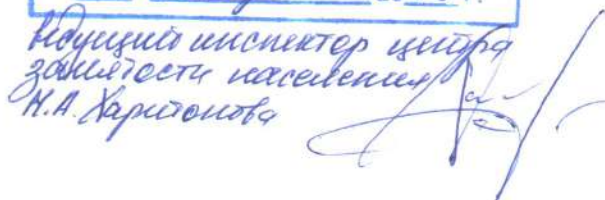 ведущий инспектор центра
занятости населения
Н.А. Харитонова